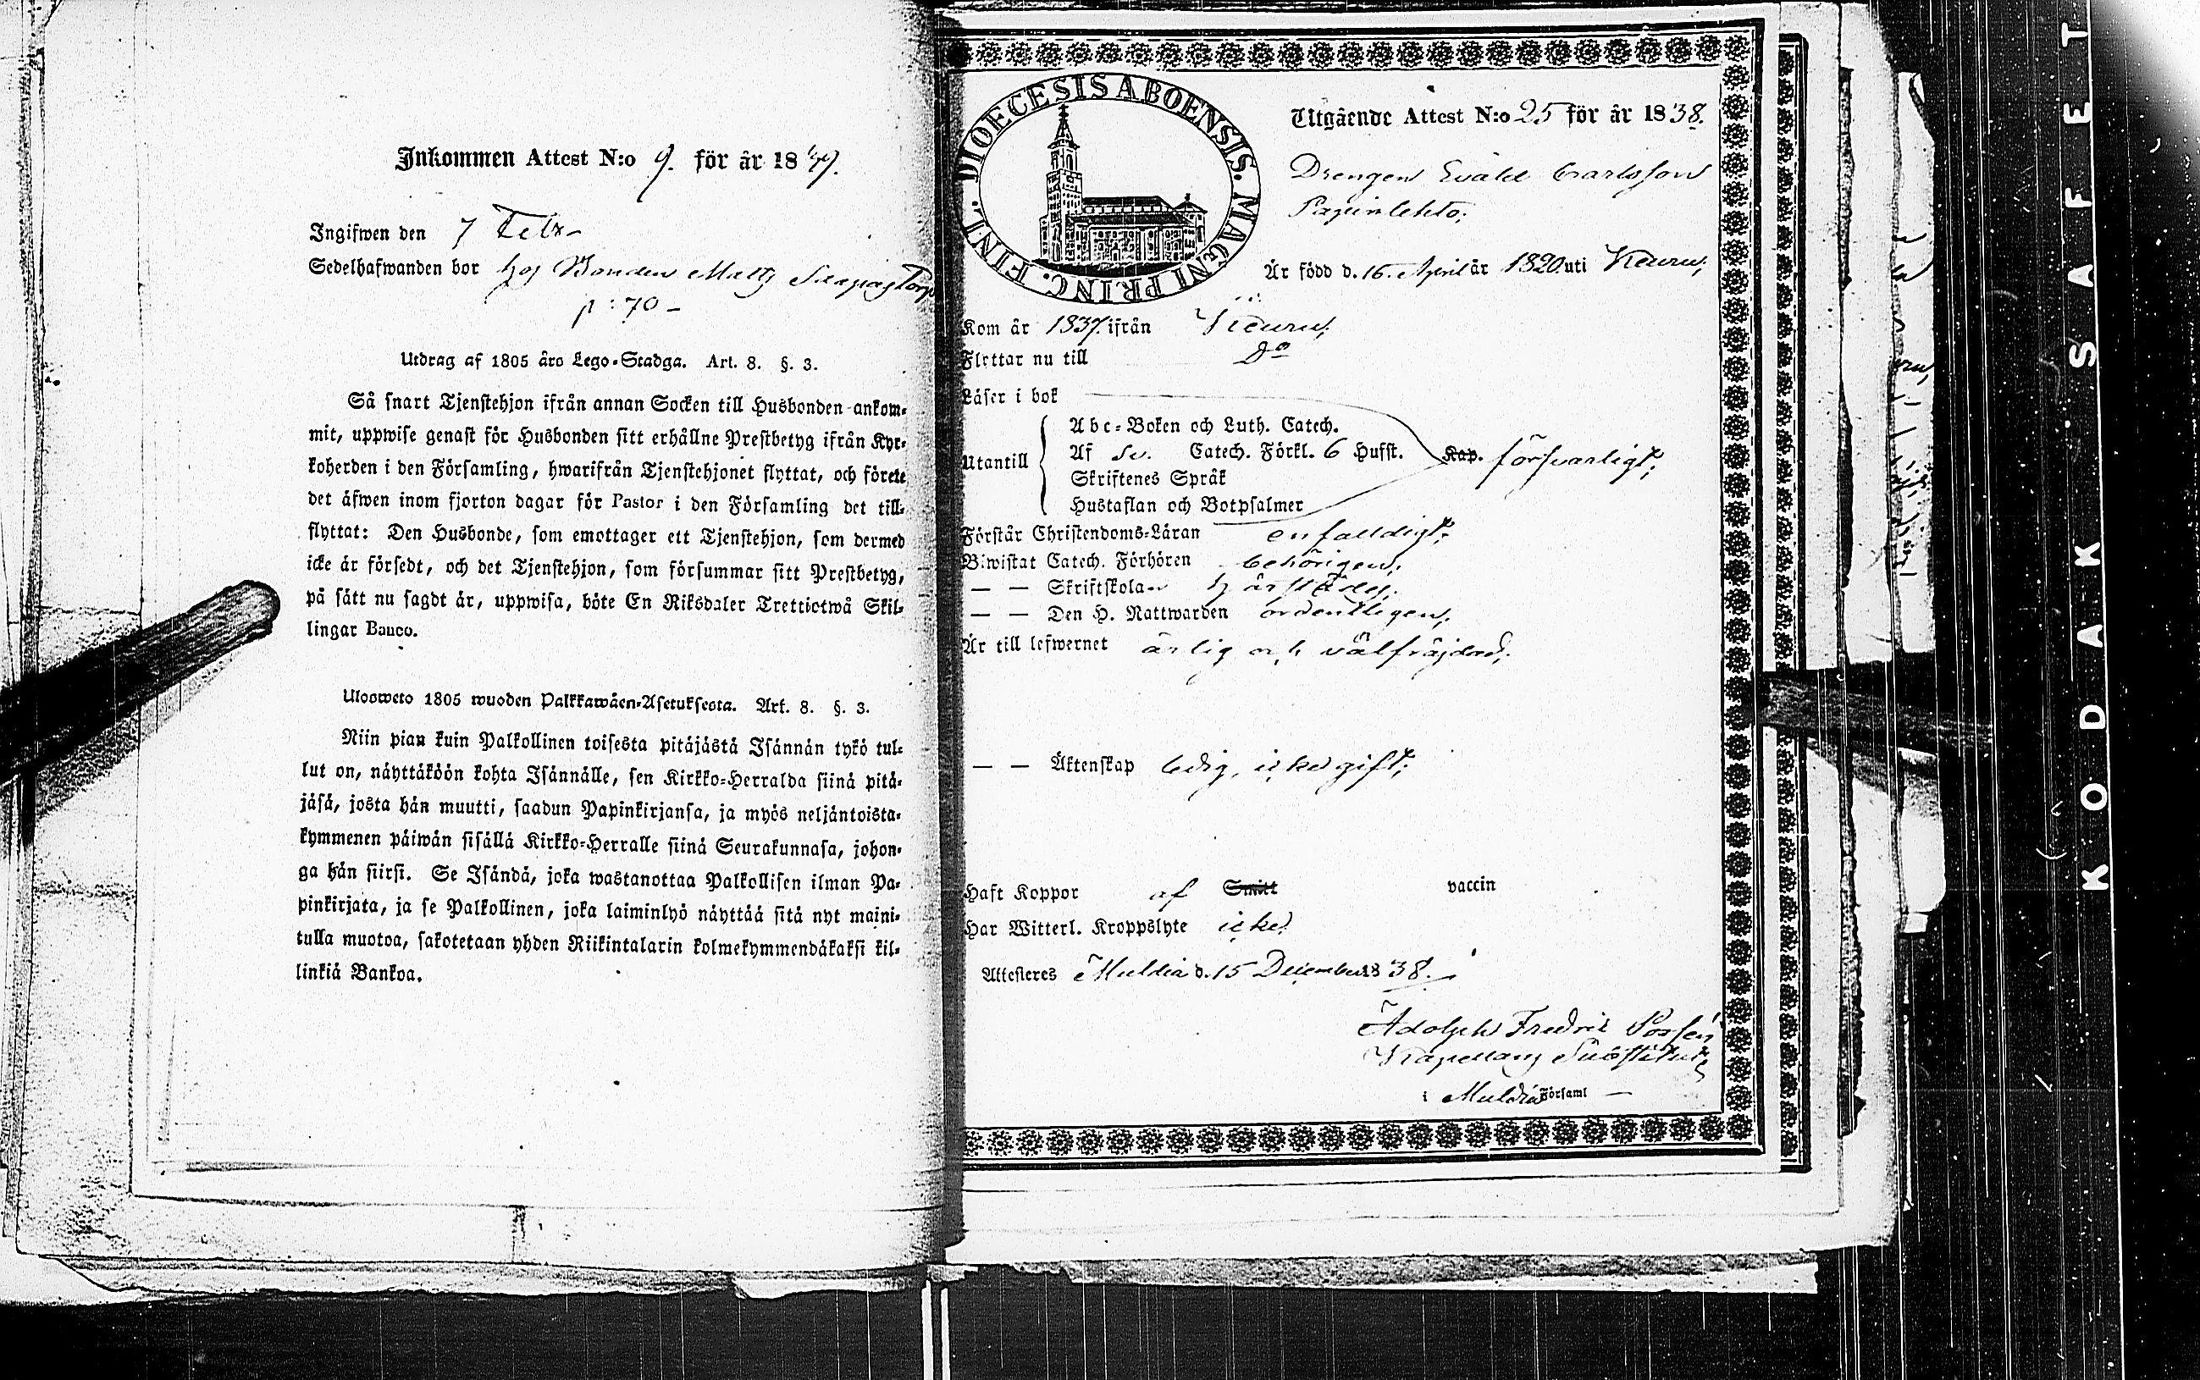 Inkommen Attest N:o 9. för år 18
Ingifwen den 7 Febr
Sedelhafwanden bor hos Bonden Matts
p: 70 -
Utdrag af 1805 åro Lego-Stadga. Art. 8. §. 3.
Så snart Tjenstehjon ifrån annan Socken till Husbonden ankom-
mit, uppwise genast för Husbonden sitt erhållne Prestbetyg ifrån Kyr-
koherden i den Församling, hwarifrån Tjenstehjonet flyttat, och förete
det äfwen inom fjorton dagar för Pastor i den Församling det till-
flyttat: Den Husbonde, som emottager ett Tjenstehjon, som dermed
icke är försedt, och det Tjenstehjon, som försummar sitt Prestbetyg,
på sätt nu sagdt är, uppwisa, böte En Riksdaler Trettiotwå Skil-
lingar Banco.
Ulosweto 1805 wuoden Palkkawäen-Asetuksesta. Art. 8. §. 3.
Niin pian kuin Palkollinen toisesta pitäjästä Isännän tykö tul-
lut on, näyttäköön kohta Isännälle, sen Kirkko-Herralda siinä pitä-
jäsä, josta hän muutti, saadun Papinkirjansa, ja myös neljäntoista-
kymmenen päiwän sisällä Kirkko-Herralle siinä Seurakunnasa, johon-
ga hän siirsi. Se Isändä, joka wastanottaa Palkollisen ilman Pa-
pinkirjata, ja se Palkollinen, joka laiminlyö näyttää sitä nyt maini-
tulla muotoa, sakotetaan yhden Riikintalarin kolmekymmendäkaksi kil-
linkiä Bankoa.
DIOECESIS ABOENSIS. MAGNI PRINC. FINL.
Utgående Attest N:o 25 för år 1838.
Drengen Evald Carlsson
Papinlehto;
Är född d. 16. April år 1820 uti Keuru;
Kom år 1837. ifrån Keuru;
Flyttar nu till Do
Läser i bok
Utantill
Abc-Boken och Luth. Catech.
Af Sv. Catech. Förkl. 6 Hufst. Kap. försvarligt;
Skriftenes Språk
Hustaflan och Botpsalmer
Förstår Christendoms-Läran enfaldigt;
Biwistat Catech. Förhören behörigen;
— — Skriftskolan härstädes;
— — Den H. Nattwarden ordentligen;
Är till lefwernet ärlig och välfräjdad;
— — Äktenskap ledig, icke gift;
Haft Koppor af Smitt vaccin
Har Witterl. Kroppslyte icke
Attesteres Muldia d. 15 December 1838.
Adolph Fredric
Kapellans Substitut
i Muldia Församl
KODAK SAFET